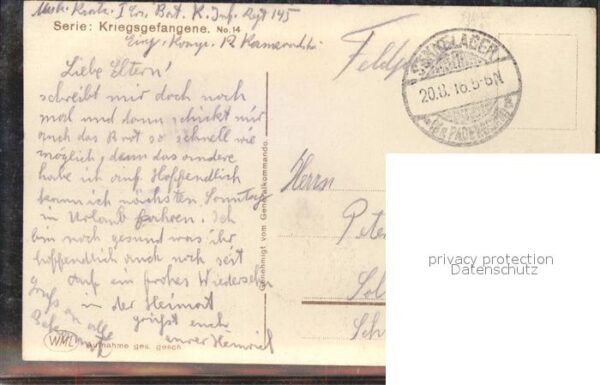 Musk. Kratz. I Ers. Bat. R. Inf. Regt 145
Serie: Kriegsgefangene. No. 14
Einj. Komp.
Feldp
SENNELAGER
20.8.16.5-6N
Liebe Eltern!
schreibt mir doch noch
mal und dann schickt mir
auch das Brot so schnell wie
möglich, denn das andere
habe ich auf Hoffendlich
kann ich nächsten Sonntag
in Urlaub fahren. Ich
bin noch gesund was ihr
hoffendlich auch noch seit
Auf ein frohes Wiedersehn
in der Heimat
grüßt euch
euer Heinrich
Gruß an alle
Bekannte
WML
Aufnahme ges. gesch.
Genehmigt vom Generalkommando.
Herrn
Peter
Sol
Sch
privacy protection
Datenschutz